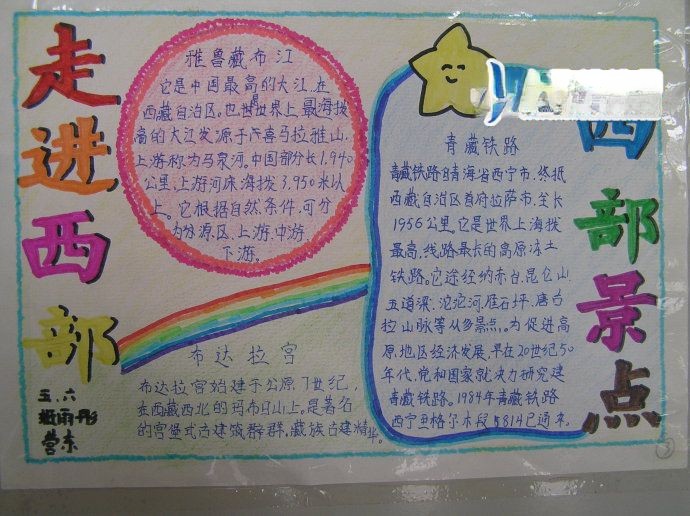 走进西部
雅鲁藏布江
它是中国最高的大江,在
西藏自治区。也世世界上最海拨
高的大江发源于喜马拉雅山。
上游称为马泉河。中国部分长1.940
公里、上游河床海拨3.950米以
上。它根据自然条件,可分
为分源区、上游、中游、
下游。
布达拉宫
布达拉宫始建于公原7世纪,
在西藏西北的玛布日山上。是著名
的宫堡式古建筑群,藏族古建精
五、六
雨彤
青藏铁路
青藏铁路青海省西宁市,终抵
西藏自治区首府拉萨市,全长
1956公里。它是世界上海拨
最高,线路最长的高原冻土
铁路。它途经纳赤台、昆仑山
五道梁、沱沱河、雁石坪、唐古
拉山脉等从多景点。为促进高
原地区经济发展,早在20世纪50
年代,党和国家就决力研究建
青藏铁路。1984年青藏铁路
西宁至格尔木段5814已通来。
西部景点